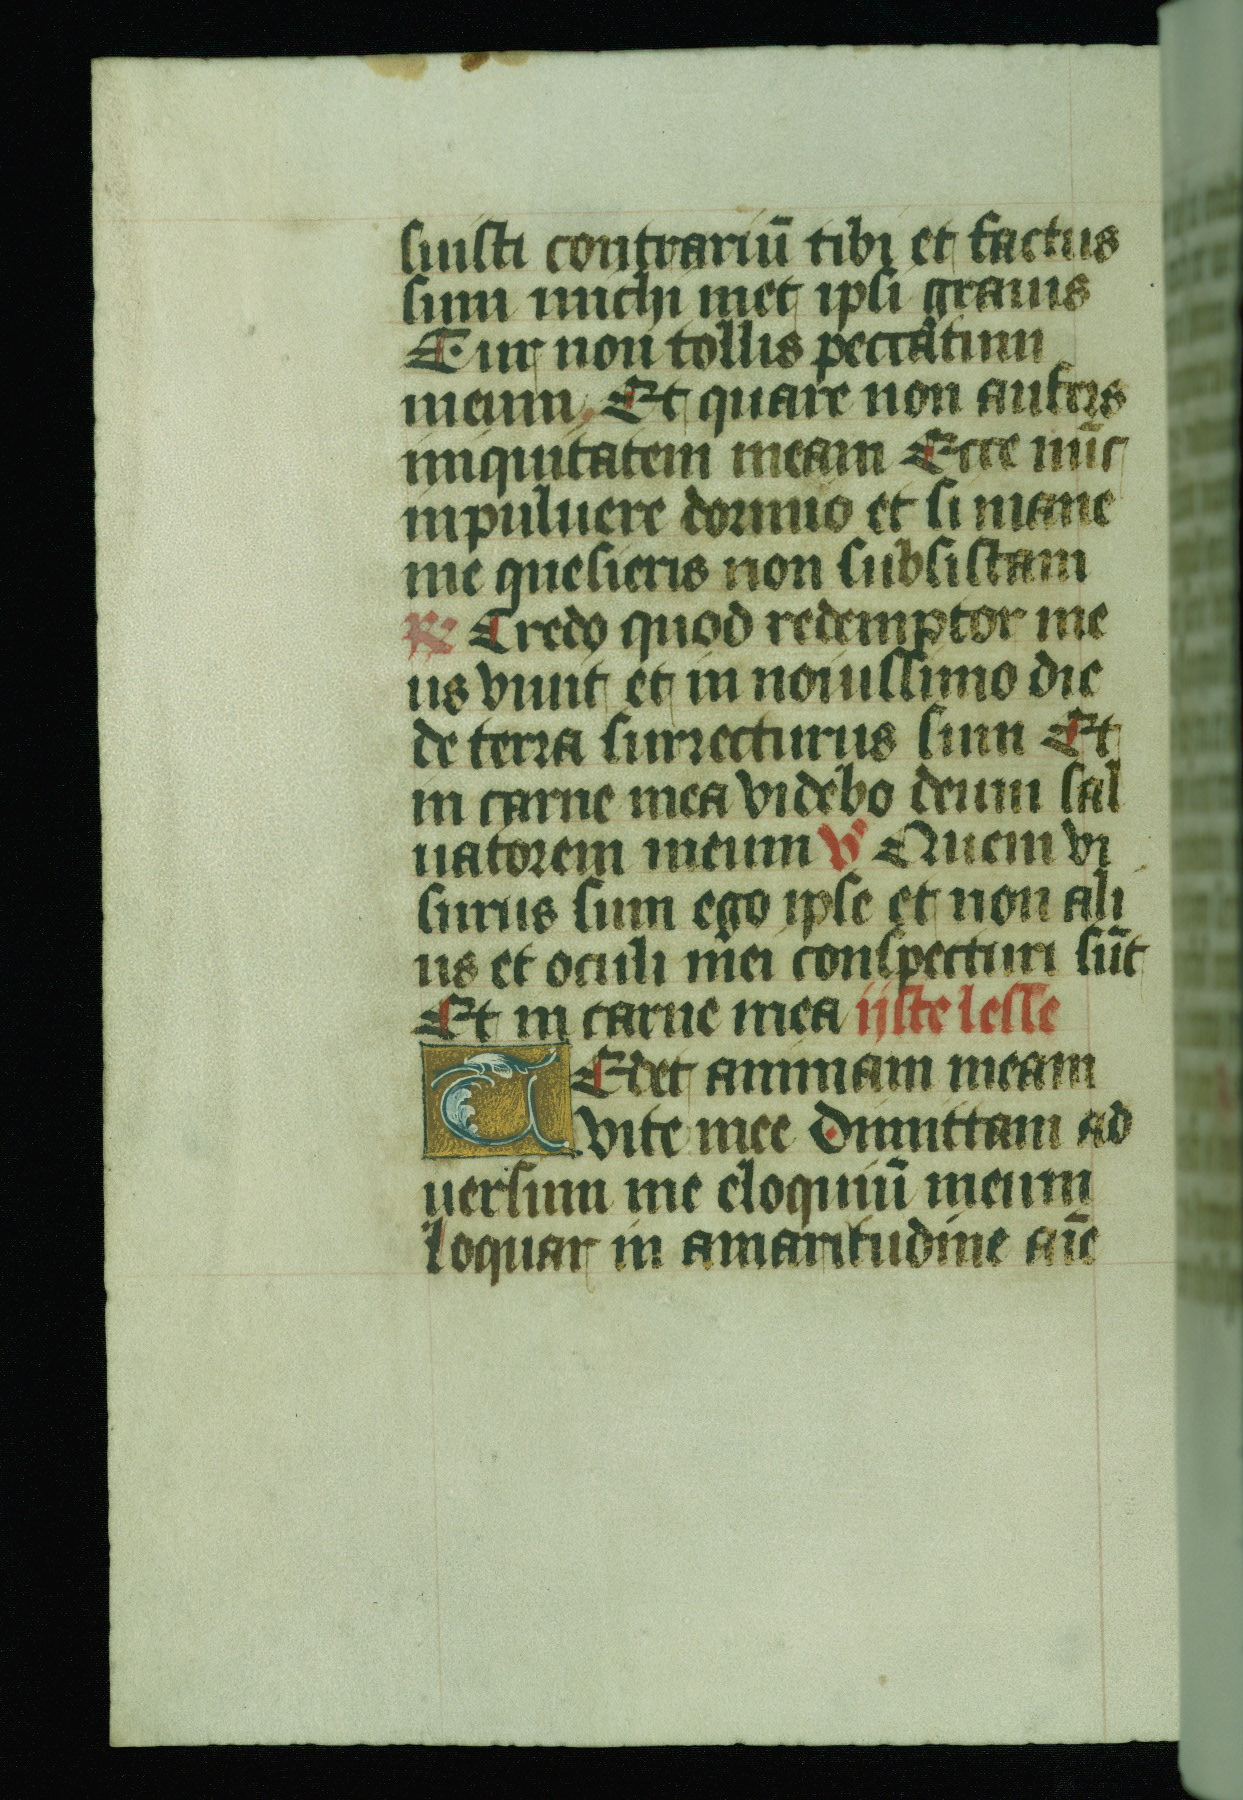 suisti contrariū tibi et factus
sum michi met ipsi grauis
Cur non tollis peccatum
meum Et quare non aufers
iniquitatem meam Ecce nūc
inpuluere dormio et si mane
me quesieris non subsistam
℟ Credo quod redemptor me
us viuit et in nouissimo die
de terra surrecturus sum Et
in carne mea videbo deum sal
uatorem meum ℣ Quem vi
surus sum ego ipse et non ali
us et oculi mei conspecturi sūt
Et in carne mea ijste lesse
TEdet animam meam
vite mee Dimittam ad
uersum me eloquiū meum
loquar in amaritudine aīe